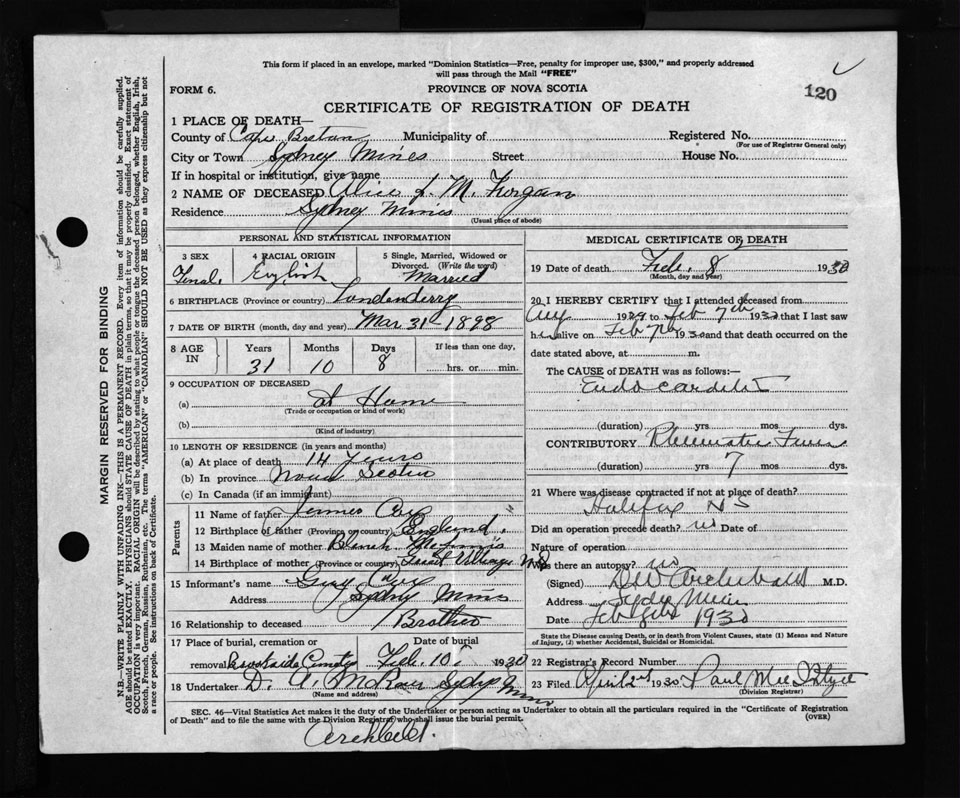 This form if placed in an envelope, marked "Dominion Statistics—Free, penalty for improper use, $300," and properly addressed
will pass through the Mail "FREE"
FORM 6.
PROVINCE OF NOVA SCOTIA
120
CERTIFICATE OF REGISTRATION OF DEATH
1 PLACE OF DEATH—
County of Cape Breton Municipality of Registered No.
(For use of Registrar General only)
City or Town Sydney Mines Street House No.
If in hospital or institution, give name
2 NAME OF DECEASED Alice J. M. Forgan
Residence Sydney Mines
(Usual place of abode)
PERSONAL AND STATISTICAL INFORMATION
3 SEX 4 RACIAL ORIGIN 5 Single, Married, Widowed or
Divorced. (Write the word)
Femal. English Married
6 BIRTHPLACE (Province or country) Londonderry
7 DATE OF BIRTH (month, day and year) Mar 31-1898
8 AGE IN Years Months Days If less than one day,
31 10 8 hrs. or min.
9 OCCUPATION OF DECEASED
(a) at Home
(Trade or occupation or kind of work)
(b)
(Kind of industry)
10 LENGTH OF RESIDENCE (in years and months)
(a) At place of death 14 years
(b) In province Nova Scotia
(c) In Canada (if an immigrant)
Parents
11 Name of father James
12 Birthplace of father (Province or country) England.
13 Maiden name of mother McInnis
14 Birthplace of mother (Province or country) Village NS
15 Informant's name Guy
Address Sydney Mines
16 Relationship to deceased Brother
17 Place of burial, cremation or Date of burial
removal Brookside Cemetery Feb. 10 1930
18 Undertaker D. A. Sydney Mines
(Name and address)
MEDICAL CERTIFICATE OF DEATH
19 Date of death Feb. 8 1930
(Month, day and year)
20 I HEREBY CERTIFY that I attended deceased from
Aug 1929 to Feb 7th 1930 that I last saw
h alive on Feb 7th 1930 and that death occurred on
date stated above, at m.
The CAUSE of DEATH was as follows:—
Endocarditis
(duration) yrs mos dys.
CONTRIBUTORY Rheumatic Fever
(duration) yrs 7 mos dys.
21 Where was disease contracted if not at place of death?
Halifax NS
Did an operation precede death? no Date of
Nature of operation
Was there an autopsy? no
(Signed) DW Archibald M.D.
Address Sydney Mines
Date Feb 1930
State the Disease causing Death, or in death from Violent Causes, state (1) Means and Nature
of Injury, (2) whether Accidental, Suicidal or Homicidal.
22 Registrar's Record Number
23 Filed April 2nd 1930 Paul
(Division Registrar)
SEC. 46—Vital Statistics Act makes it the duty of the Undertaker or person acting as Undertaker to obtain all the particulars required in the "Certificate of Registration
of Death" and to file the same with the Division Registrar who shall issue the burial permit.
(OVER)
MARGIN RESERVED FOR BINDING
N.B.—WRITE PLAINLY WITH UNFADING INK—THIS IS A PERMANENT RECORD. Every item of information should be carefully supplied.
AGE should be stated EXACTLY. PHYSICIANS should STATE CAUSE OF DEATH in plain terms, so that it may be properly classified. Exact statement of
OCCUPATION is very important. RACIAL ORIGIN will be described by stating to what people or tongue the deceased person belonged, whether English, Irish,
Scotch, French, German, Russian, Ruthenian, etc. The terms "AMERICAN" or "CANADIAN" SHOULD NOT BE USED as they express citizenship but not
a race or people. See instructions on back of Certificate.